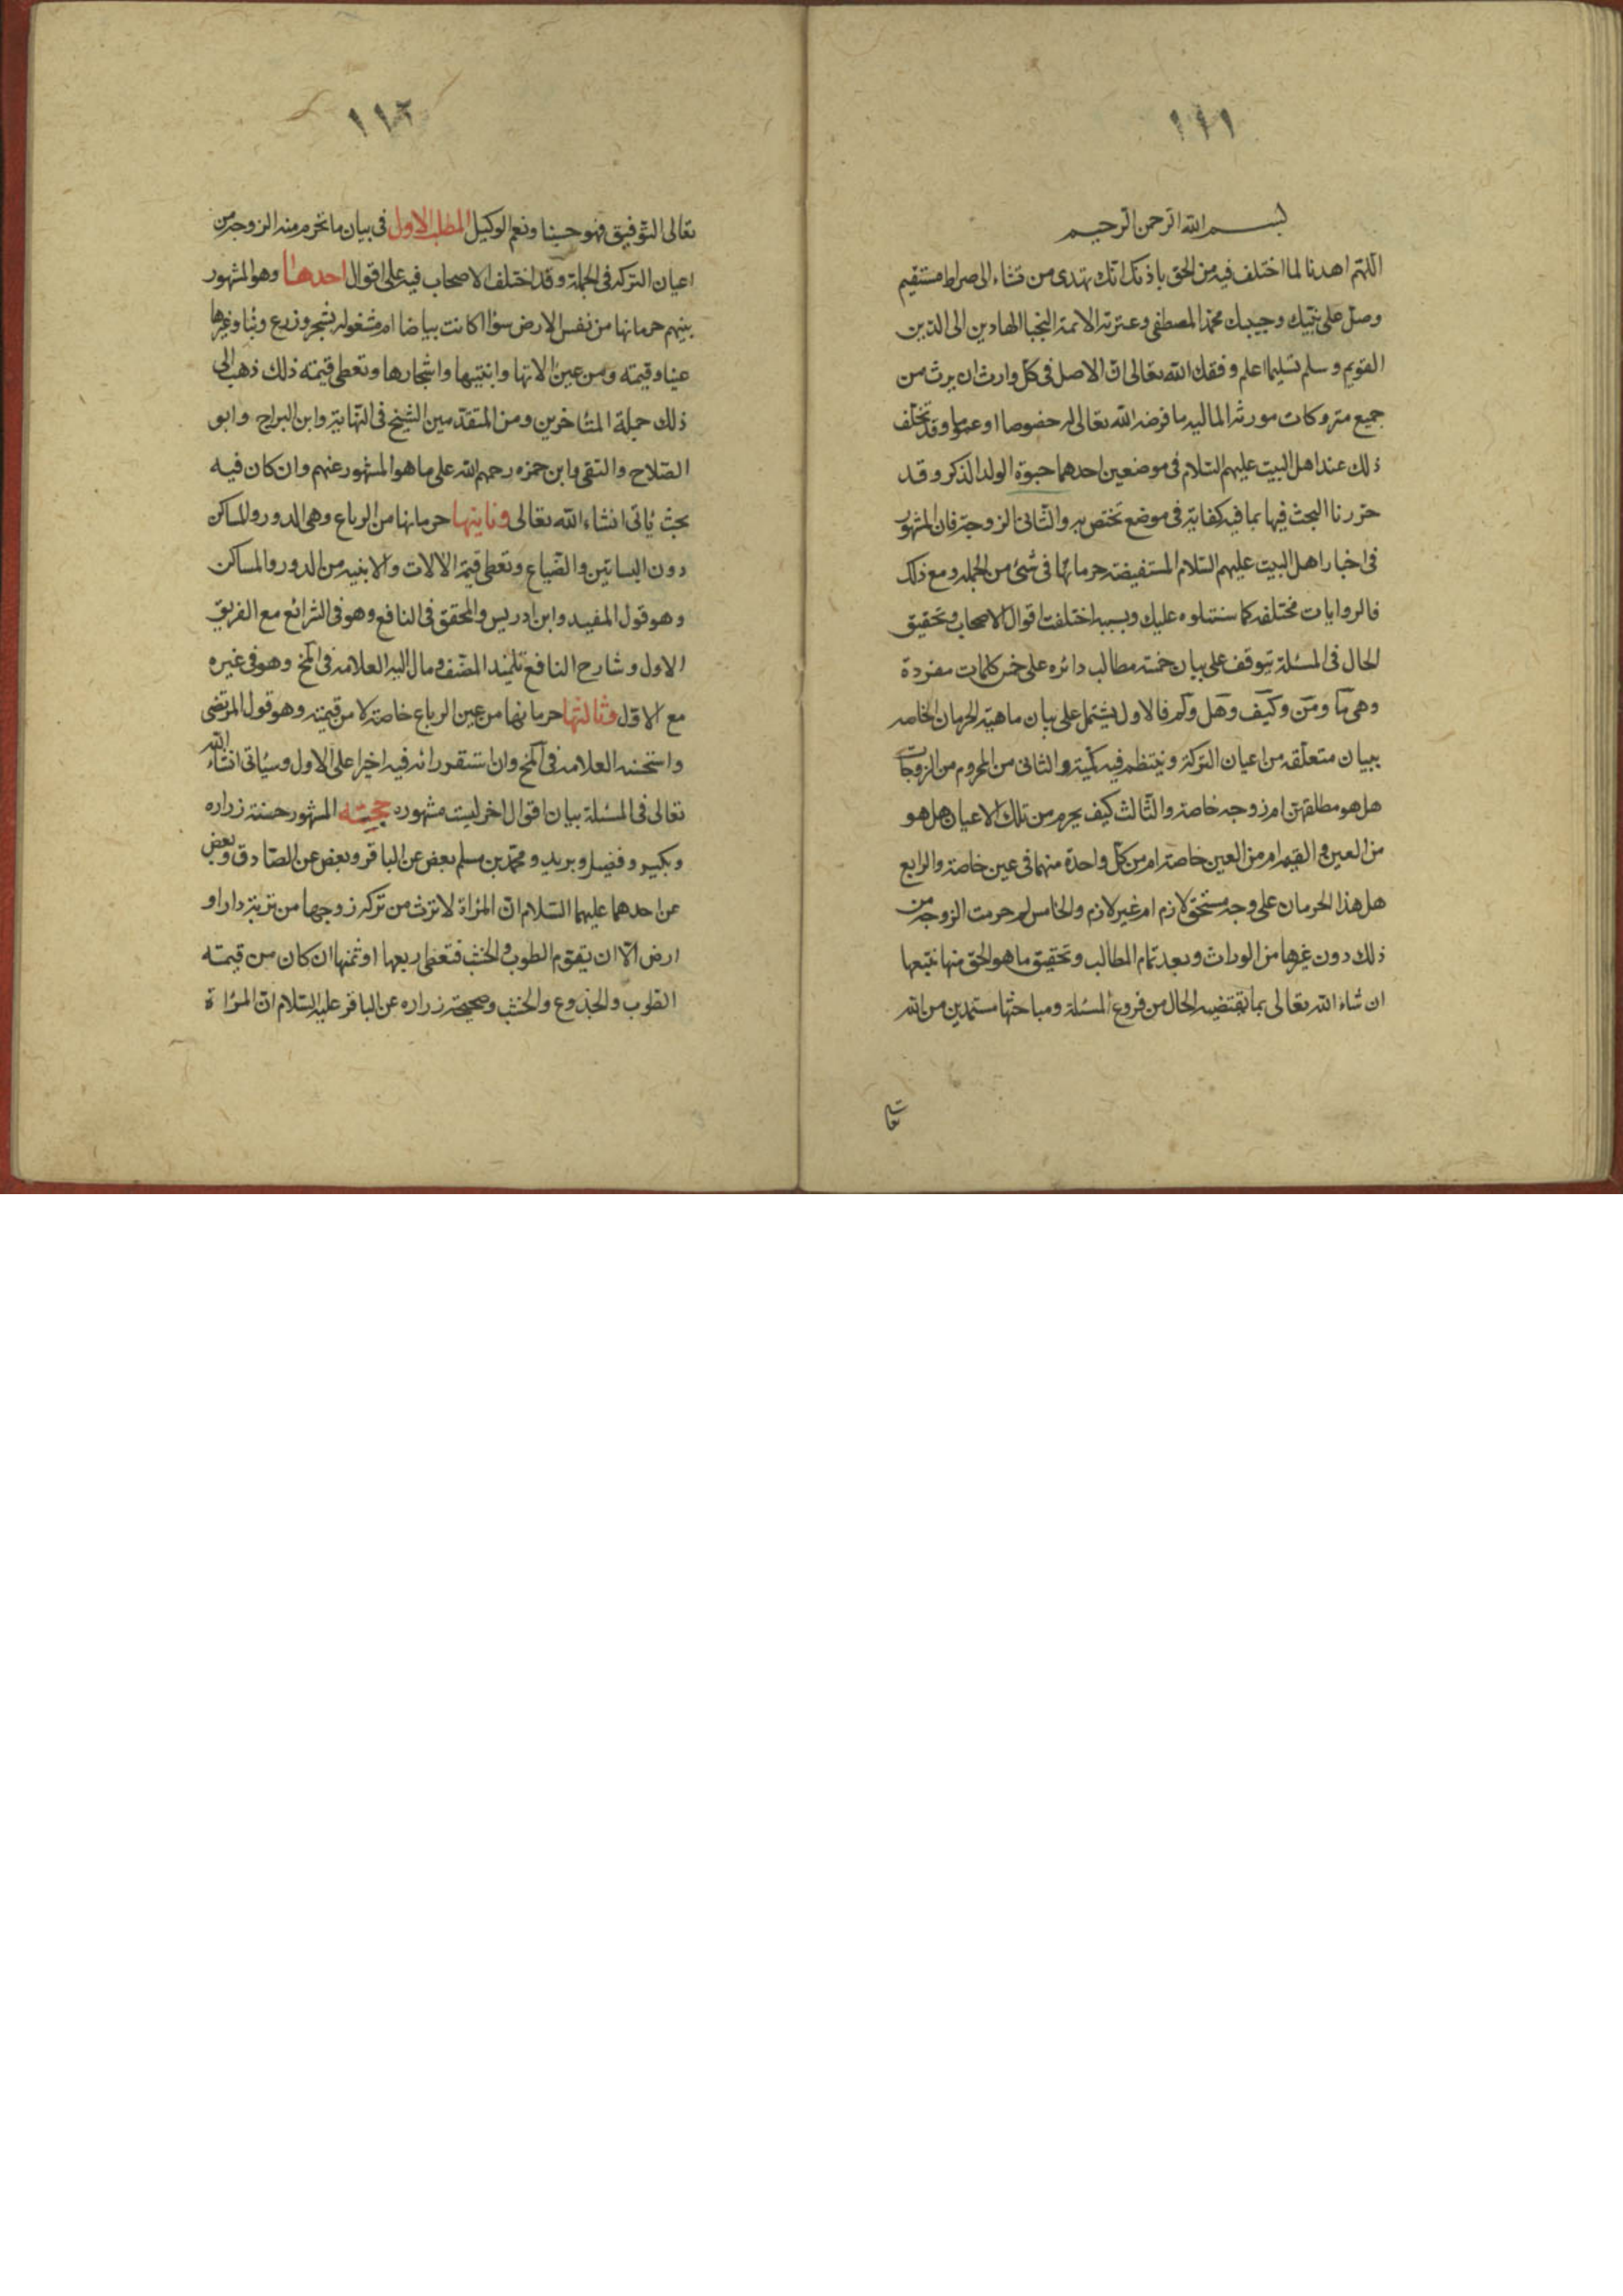 ١١١
بسم الله الرحمن الرحيم
اللهم اهدنا لما اختلف فيه من الحق باذنك انك تهدى من تشاء الى صراط مستقيم
وصل على نبيك وحبيبك محمد المصطفى وعترته الائمة النجبا الهادين الى الدين
القويم وسلم تسليما اعلم وفقك الله تعالى ان الاصل فى كل وارث ان يرث من
جميع متروكات مورثه الماليه ما فرضه الله تعالى له خصوصا او عموما وقد تخلف
ذلك عند اهل البيت عليهم السلام فى موضعين احدهما حبوة الولد الذكر وقد
حررنا البحث فيها بما فيه كفاية فى موضع تختص به والثانى الزوجة فان المشهور
فى اخبار اهل البيت عليهم السلام المستفيضة حرمانها فى شئ من الجمله ومع ذلك
فالروايات مختلفه كما سنتلوه عليك وبسببه اختلفت اقوال الاصحاب وتحقيق
الحال فى المسئلة يتوقف على بيان خمسة مطالب دائره على خمس كلمات مفردة
وهى ما ومن وكيف وهل ولم فالاول يشتمل على بيان ماهية الحرمان الخاصه
ببيان متعلقه من اعيان التركة وينتظم فيه كميته والثانى من المحروم من الزوجات
هل هو مطلقهن ام زوجه خاصة والثالث كيف يحرم من تلك الاعيان هل هو
من العين و القيمه ام من العين خاصة ام من كل واحدة منهما فى عين خاصة والرابع
هل هذا الحرمان على وجه مستحق لازم ام غير لازم والخامس لم حرمت الزوجه من
ذلك دون غيرها من الوراث وبعد تمام المطالب وتحقيق ما هو الحق منها نتبعها
ان شاء الله تعالى بما يقتضيه الحال من فروع المسئلة ومباحثها مستمدين من الله
تعالى
١١٢
تعالى التوفيق فهو حسبنا ونعم الوكيل المطلب الاول فى بيان ما تحرم منه الزوجة من
اعيان التركه فى الجملة وقد اختلف الاصحاب فيه على اقوال احدها وهو المشهور
بينهم حرمانها من نفس الارض سواء كانت بياضا ام مشغوله بشجر وزرع وبناء وغيرها
عينا وقيمته ومن عين الاتها وابنيتها واشجارها وتعطى قيمته ذلك ذهب الى
ذلك جملة المتاخرين ومن المتقدمين الشيخ فى النهاية وابن البراج وابو
الصلاح والتقى وابن حمزه رحمهم الله على ما هو المشهور عنهم وان كان فيه
بحث ياتى انشاء الله تعالى وثانيتها حرمانها من الرباع وهى الدور والمساكن
دون البساتين والضياع وتعطى قيمة الالات والابنيه من الدور والمساكن
وهو قول المفيد وابن ادريس والمحقق فى النافع وهو فى الشرائع مع الفريق
الاول وشارح النافع تلميذ المصنف ومال اليه العلامه فى المخ وهو فى غيره
مع الاول وثالثها حرمانها من عين الرباع خاصة لا من قيمته وهو قول المرتضى
واستحسنه العلامه فى المخ وان استقر رائه فيه اخيرا على الاول وسياتى انشاء الله
تعالى فى المسئلة بيان اقوال اخر ليست مشهوره حجته المشهور حسنة زراره
وبكير وفضيل وبريد ومحمد بن مسلم بعض عن الباقر وبعض عن الصادق وبعض
عن احدهما عليهما السلام ان المراة لا ترث من تركه زوجها من تربة دار او
ارض الا ان يقوم الطوب والخشب فتعطى ربعها او ثمنها ان كان من قيمته
الطوب والجذوع والخشب وصحيحة زراره عن الباقر عليه السلام ان المراة